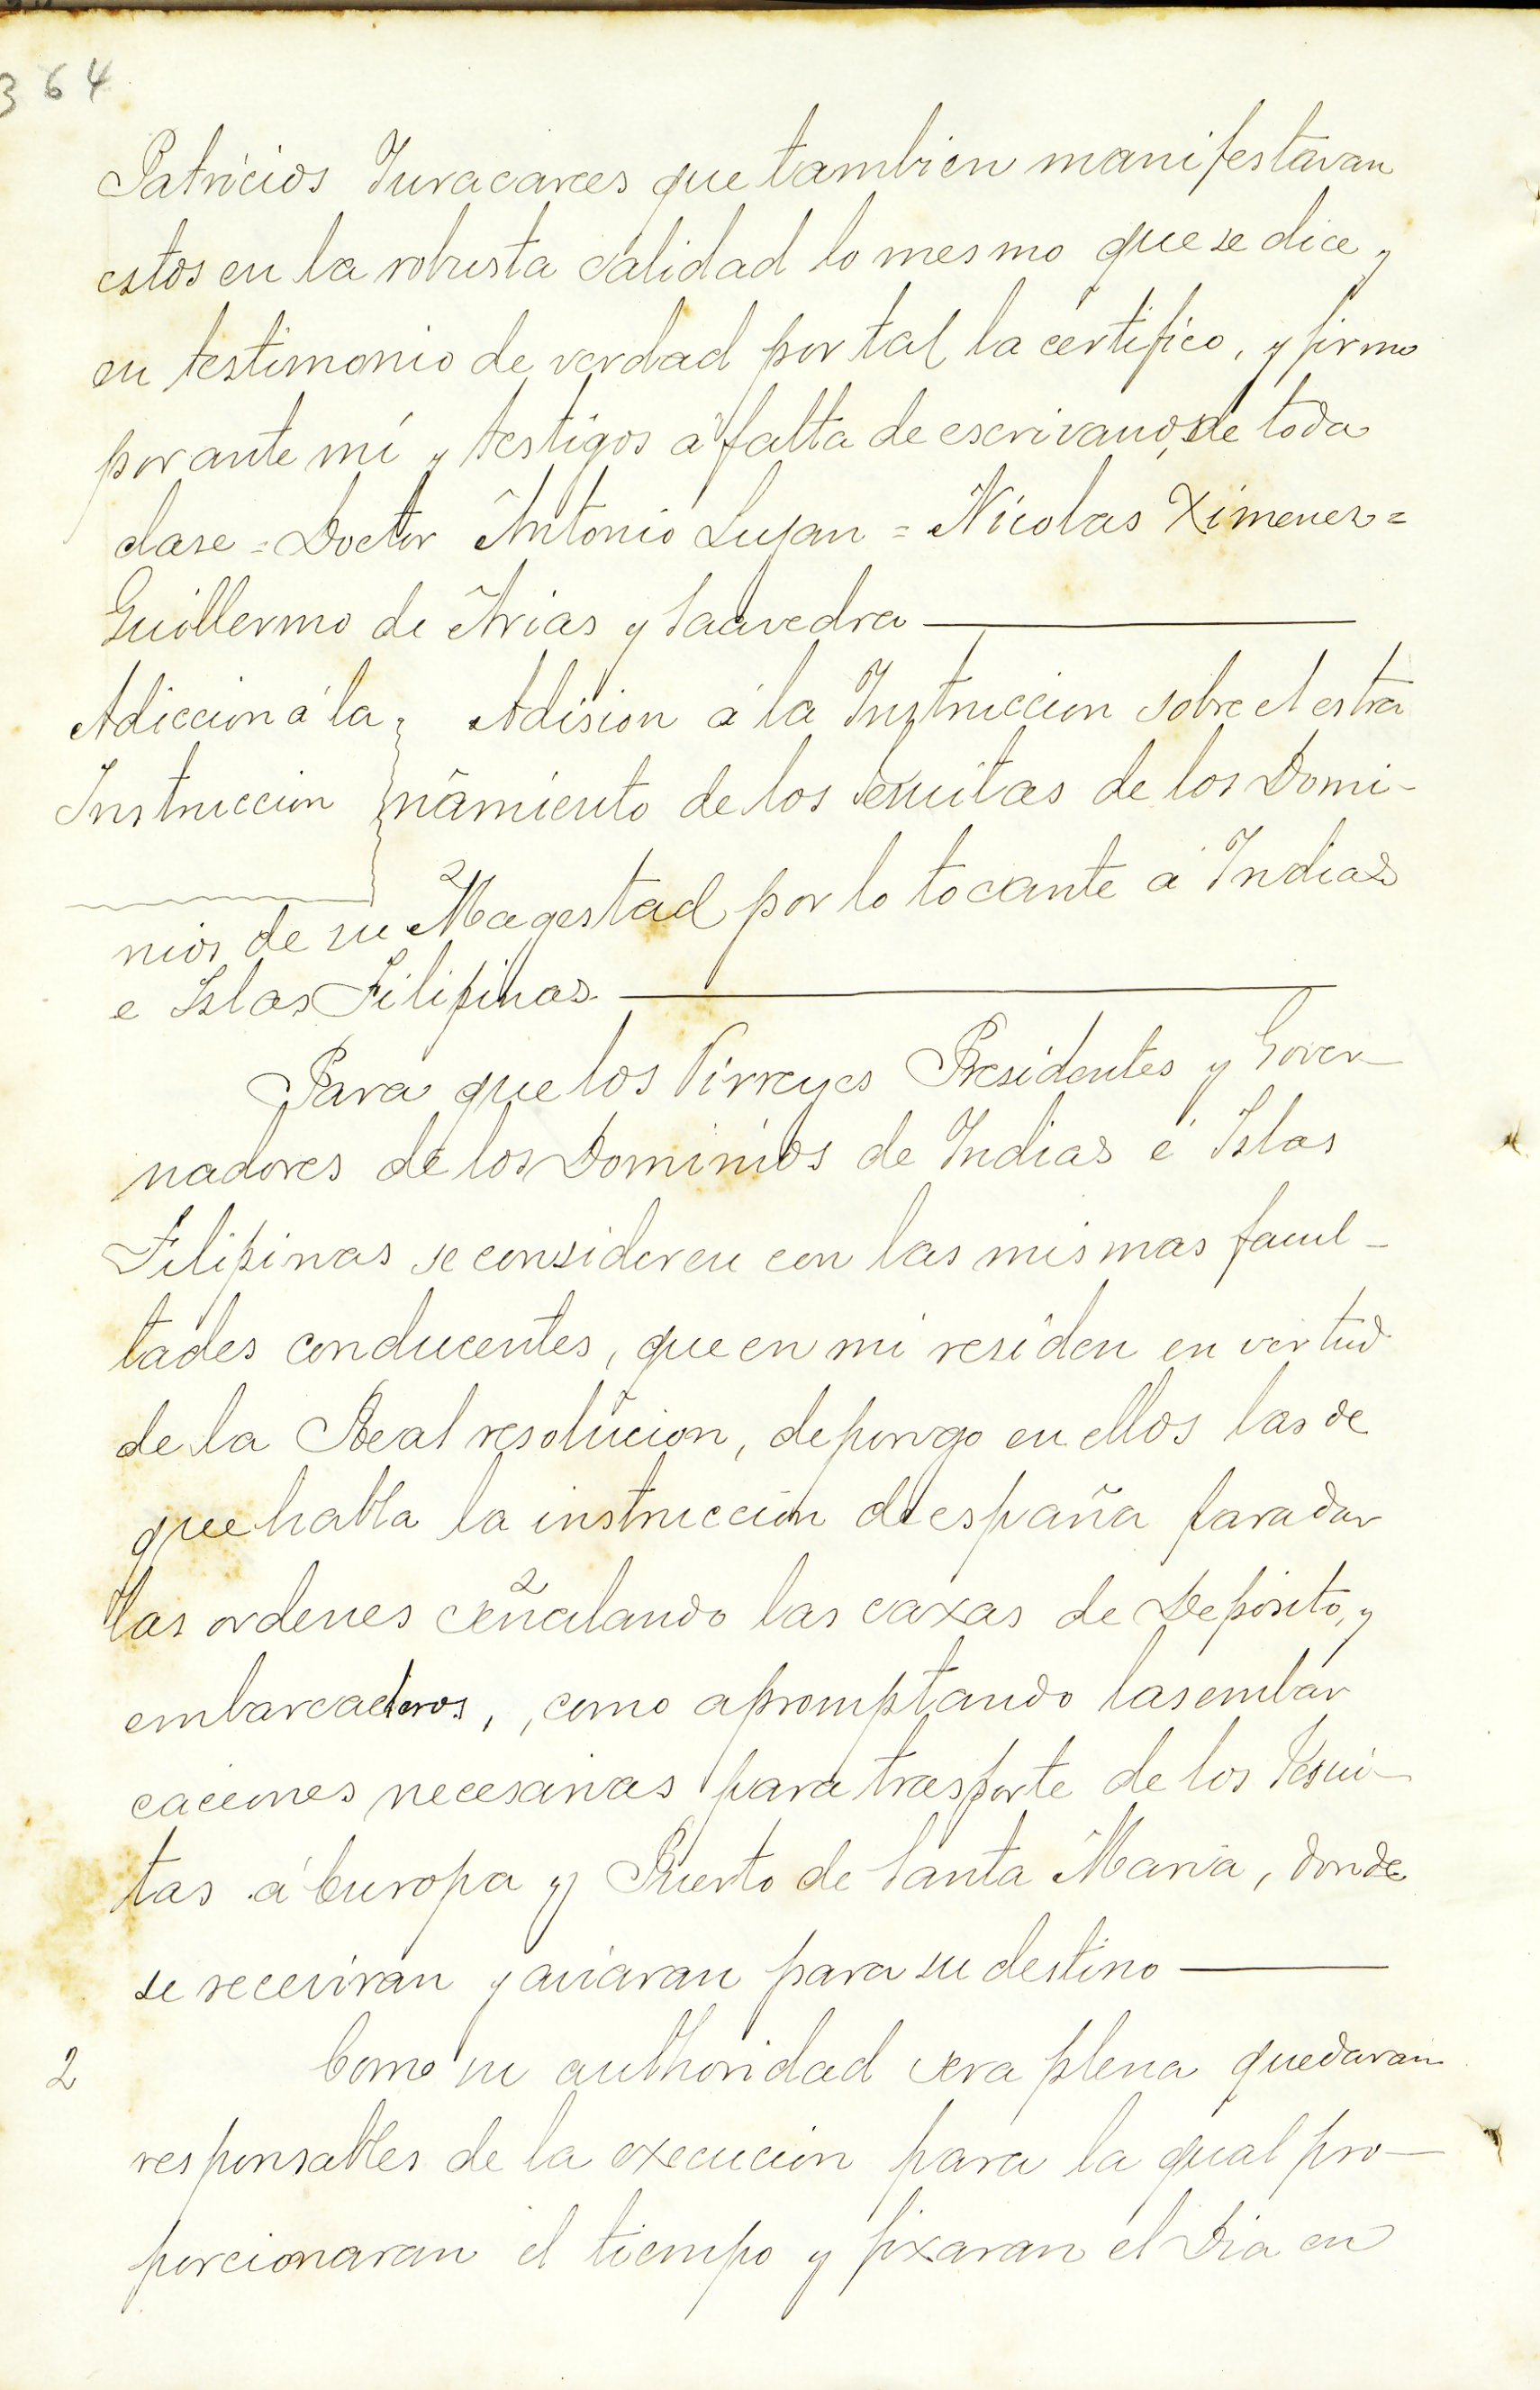 364
Patricios Yuracarees que tambien manifestavan
estos en la robusta calidad lo mesmo que se dice y
en testimonio de verdad por tal la certifico, y firmo
por ante mi y testigos a falta de escrivano, de toda
clase = Doctor Antonio Lujan = Nicolas Ximenez =
Guillermo de Arias y Saavedra
Adiccion á la
Instruccion
Adision á la Instruccion sobre el estra
ñamiento de los Jesuitas de los Domi-
nios de su Magestad por lo tocante á Indias
e Islas Filipinas
Para que los Virreyes Presidentes y Gover-
nadores de los Dominios de Indias é Islas
Filipinas se consideren con las mismas facul-
tades conducentes, que en mi residen en virtud
de la Real resolucion, depongo en ellos las de
que habla la instruccion de españa para dar
las ordenes ceñalando las caxas de Deposito, y
embarcaderos, , como apromptando las embar
caciones necesarias para trasporte de los Jesui-
tas á Europa y Puerto de Santa Maria, donde
se receviran y aviaran para su destino
2
Como su authoridad sera plena quedaran
responsables de la execucion para la qual pro-
porcionaran el tiempo y fixaran el Dia en